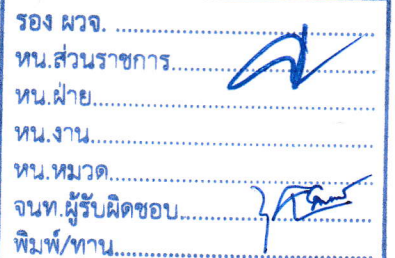 รอง ผวจ. ........................................
หน.ส่วนราชการ........................................
หน.ฝ่าย........................................
หน.งาน........................................
หน.หมวด........................................
จนท.ผู้รับผิดชอบ........................................
พิมพ์/ทาน........................................